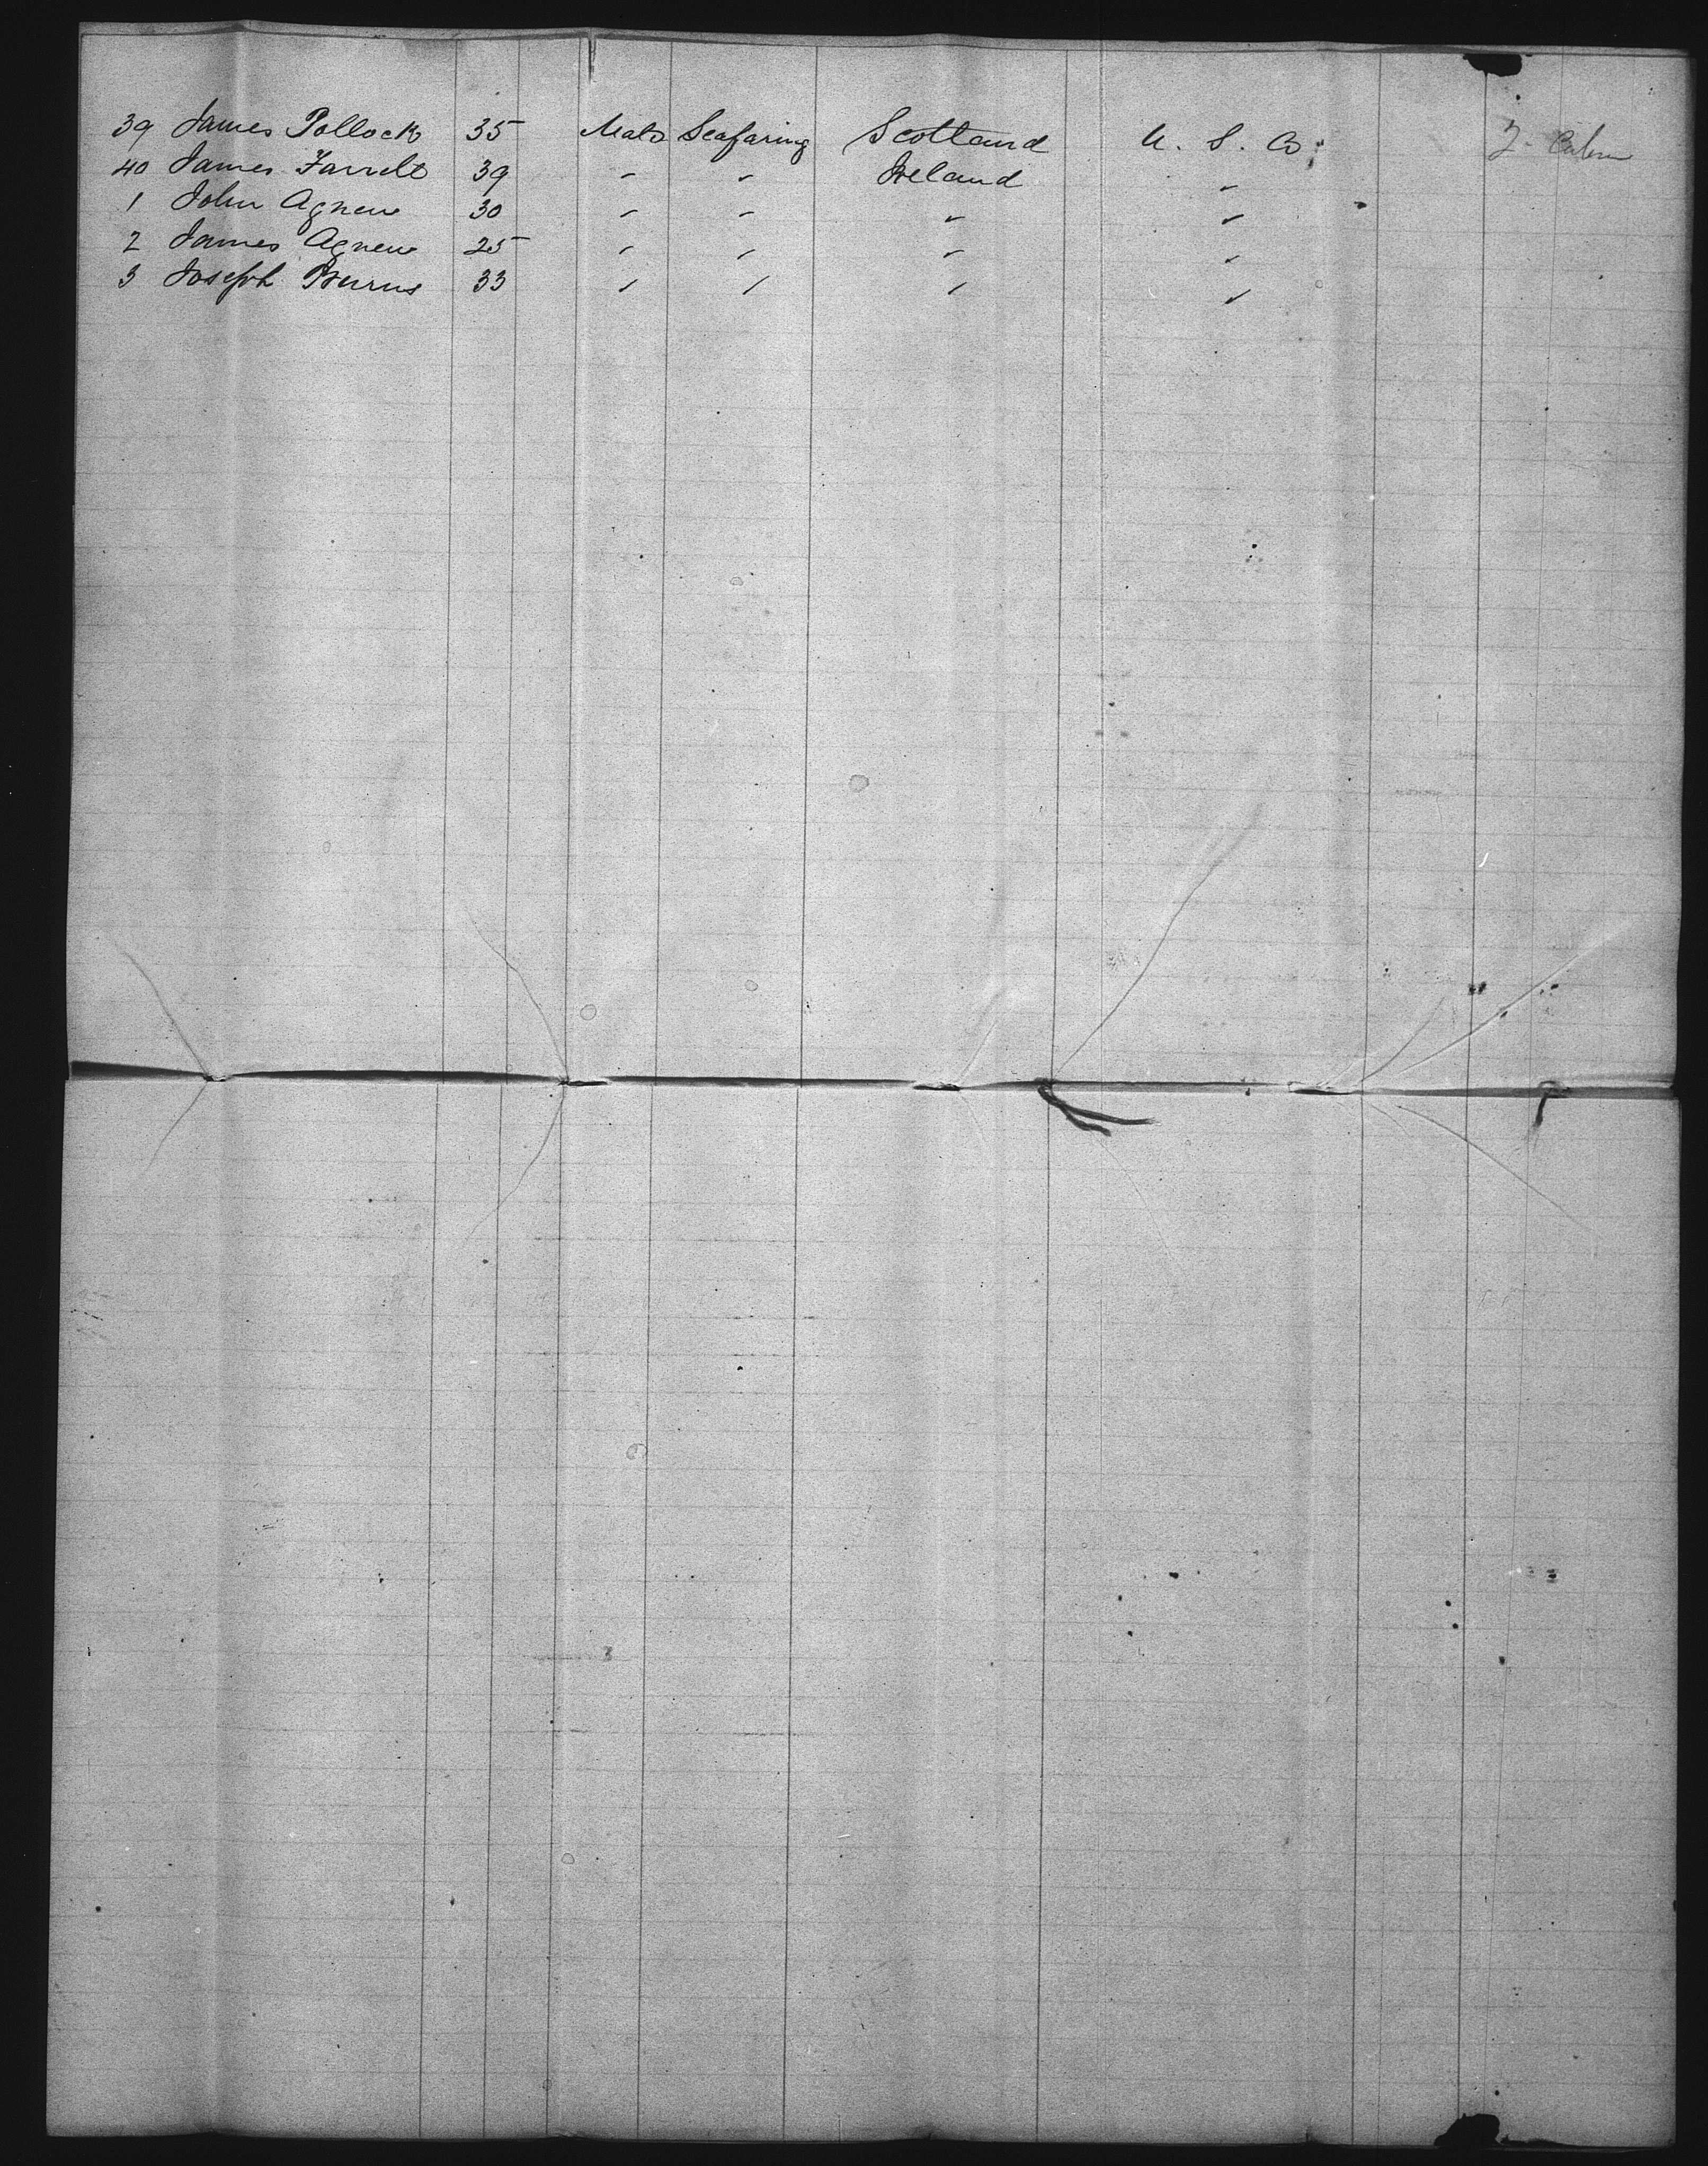 39 James Pollock 35 Male Seafaring Scotland U. S. A.
40 James Farrell 39 " " Ireland "
1 John Agnew 30 " " " "
2 James Agnew 25 " " " "
3 Joseph Burns 33 " " " "